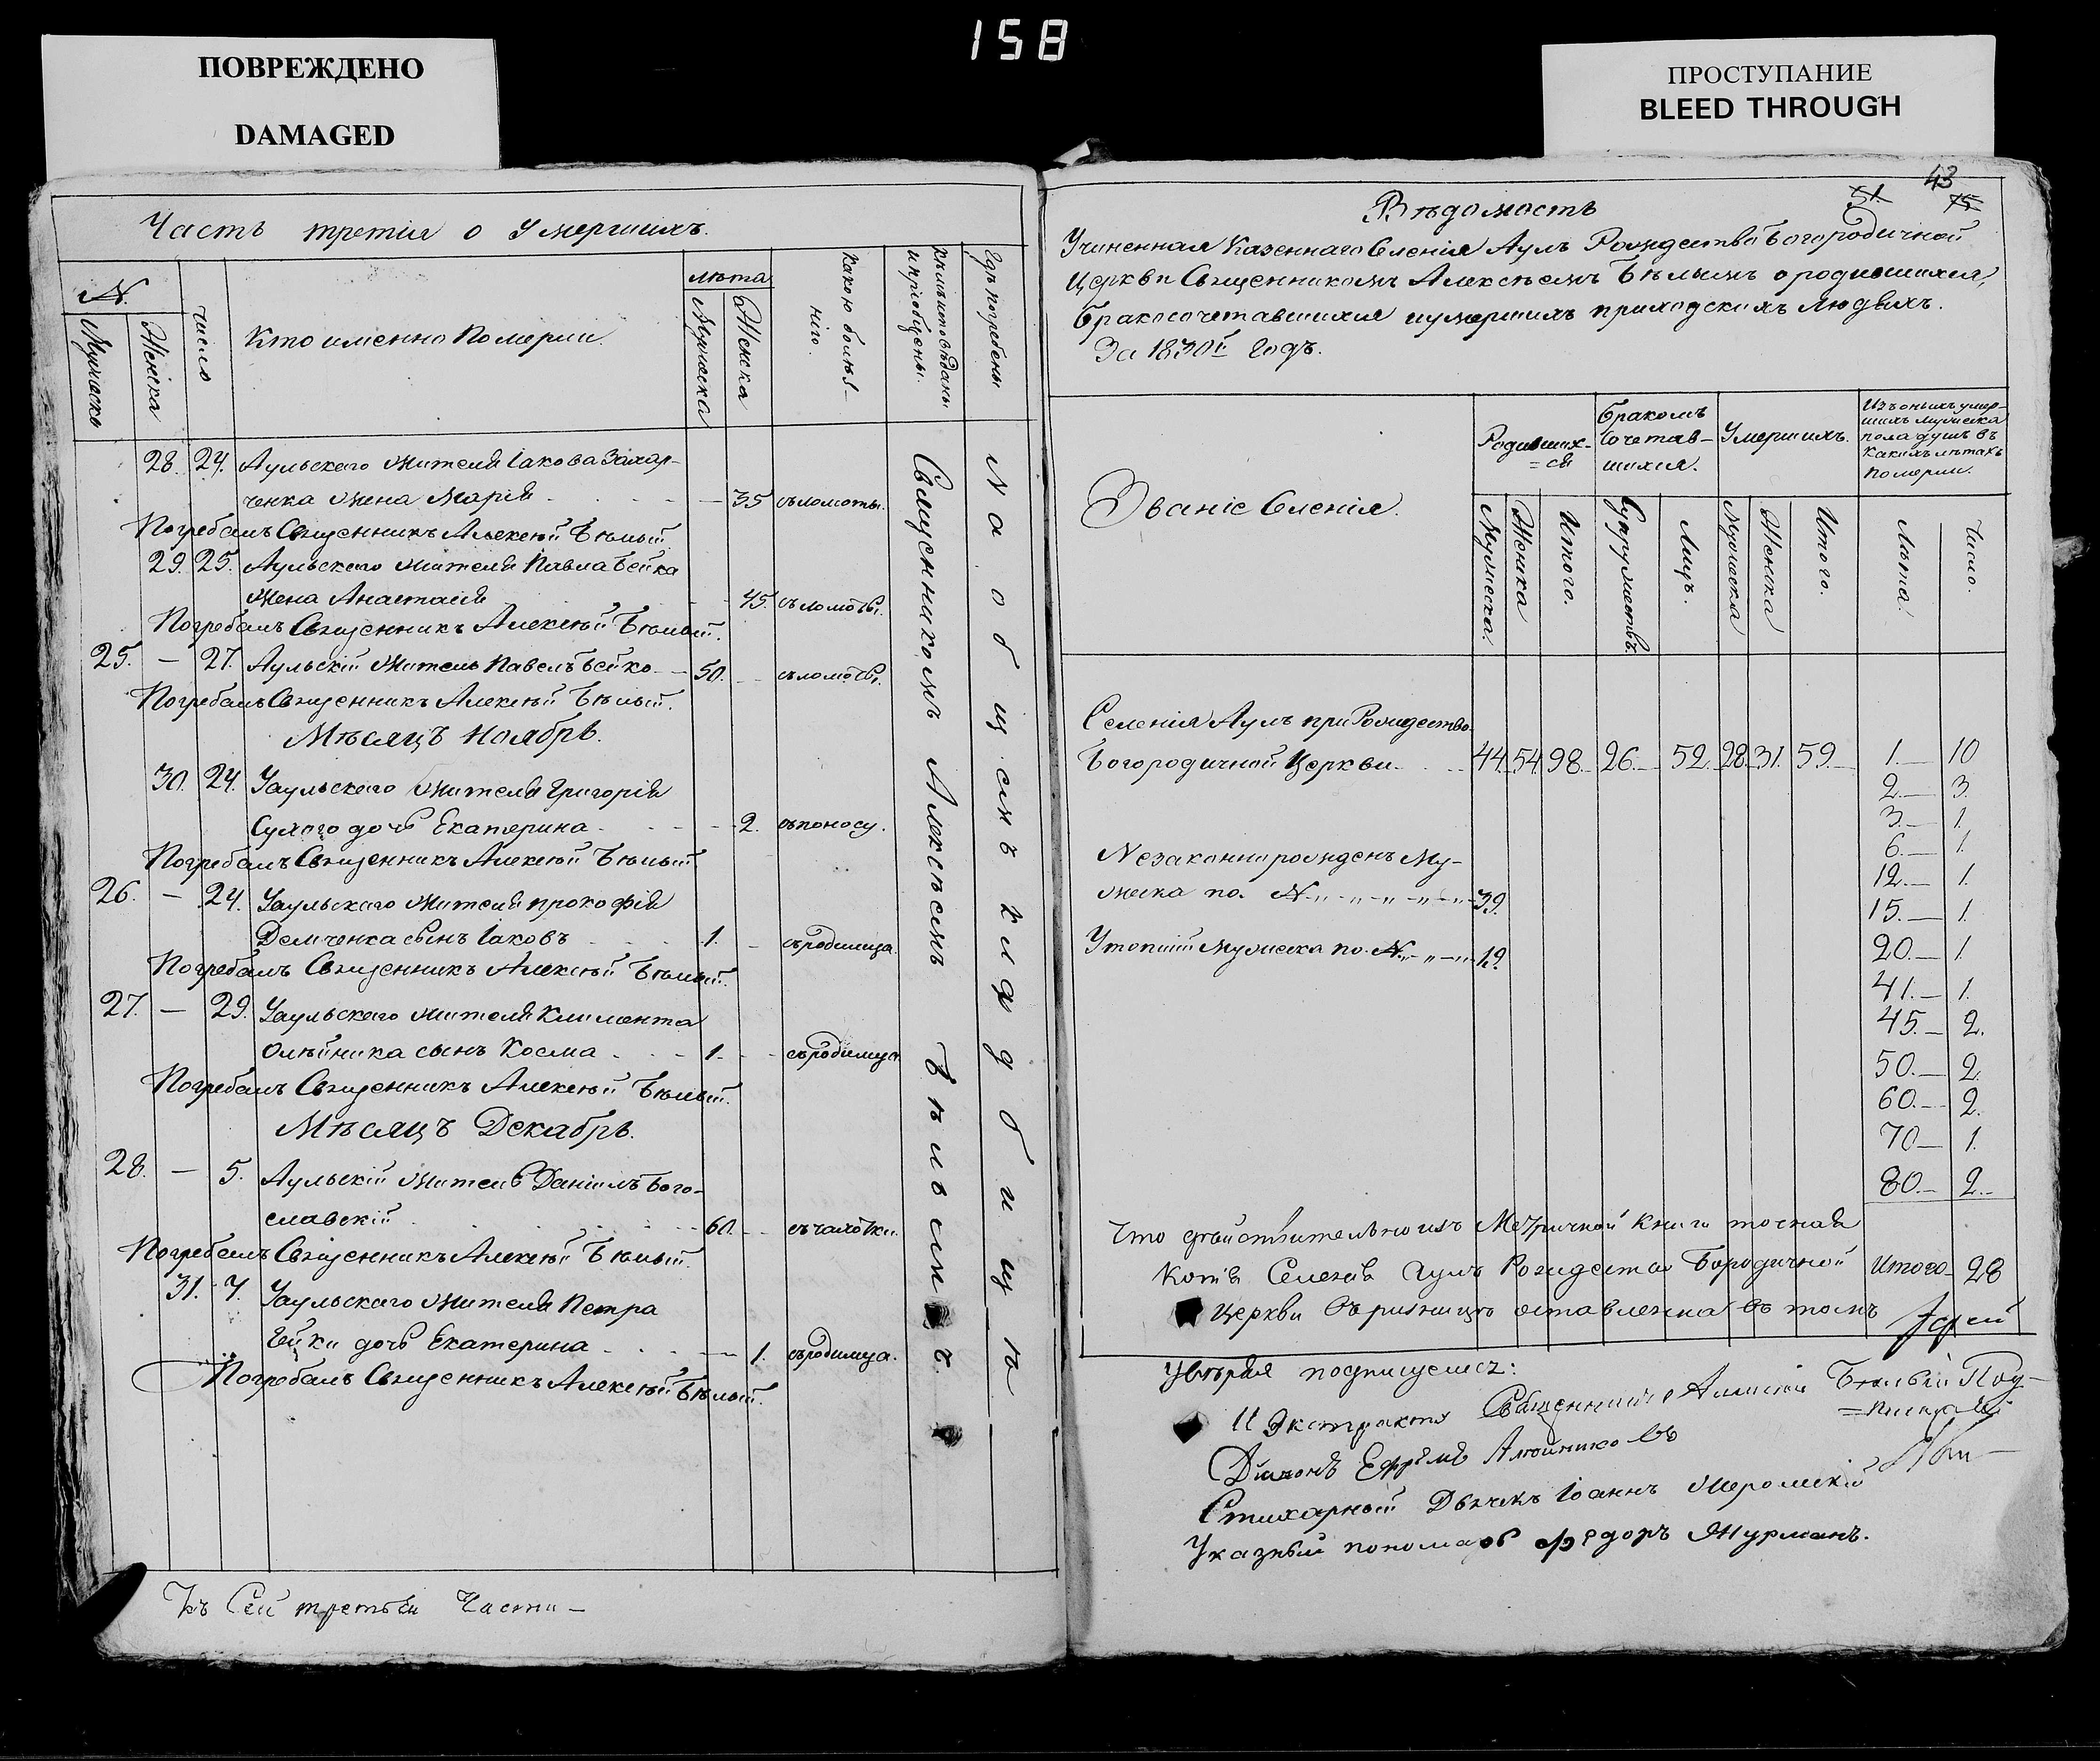 158
ПОВРЕЖДЕНО
DAMAGED
ПРОСТУПАНИЕ
BLEED THROUGH
Часть третія о Умершихъ.
№.
Мужеска
Женска
число
Кто именно Померли.
лѣта
Мужеска
Женска
какою болѣз-
нію.
кѣмъ исповѣданы
и пріобщены.
Гдѣ погребены
28. 24. Аульскаго жителя Іакова Захар-
ченка жена Марія - 35 съ ломоты.
Погребалъ Священникъ Алексѣй Бѣлый
29. 25. Аульскаго жителя Павла Бейка
жена Анастасія 45. съ ломоты.
Погребалъ Священникъ Алексѣй Бѣлый.
25. — 27. Аульскій житель Павелъ Бейко 50. съ ломоты.
Погребалъ Священникъ Алексѣй Бѣлый.
Мѣсяцъ Ноябрь.
30. 24. Уаульскаго жителя Григорія
Сухого дочь Екатерина 2. съ поносу.
Погребалъ Священникъ Алексѣй Бѣлый
26. — 24. Уаульскаго жителя прокофія
Демченка сынъ Іаковъ 1. съ родимца.
Погребалъ Священникъ Алексѣй Бѣлый.
27. — 29. Уаульскаго жителя Климента
Олѣйника сынъ Косма 1. съ родимца
Погребалъ Священникъ Алексѣй Бѣлый.
Мѣсяцъ Декабрь.
28. — 5. Аульскій житель Даніилъ Бого-
славскій 60. съ чахотки.
Погребалъ Священникъ Алексѣй Бѣлый.
31. 7. Уаульскаго жителя Петра
дочь Екатерина 1. съ родимца.
Погребалъ Священникъ Алексѣй Бѣлый.
Священникомъ Алексѣемъ Бѣлымъ
На общемъ кладбищѣ
Къ Сей третьей Части —
43
51.
75
Вѣдомость
Учиненная Казеннаго Сленія Аулъ Рождество Богородичной
Церкви Священникомъ Алексѣемъ Бѣлымъ о родившихся,
Бракосочетавшихся и умершихъ приходскихъ людѣхъ.
За 1830й Годъ.
Званіе Сленія.
Родивших-
=ся
Мужеска.
Женска
Итого.
Бракомъ
Сочетав-
шихся.
Супружествъ.
Лицъ.
Умершихъ.
Мужеска
Женска
Итого.
Изъ оныхъ умер-
шихъ мужеска
пола душъ въ
какихъ лѣтахъ
померли.
Лѣта.
Число.
Селенія Аулъ при Рождество
Богородичной Церкви 44. 54 98. 26. 52. 28. 31. 59. 1. 10
2. 3.
3. 1.
6. 1.
Незаконнорожденъ Му-
жеска по. № 39. 12. 1.
15. 1.
Утопшій мужеска по. № 19. 20. 1.
41. 1.
45. 2.
50. 2.
60. 2.
70 1.
80. 2.
Что дѣйствительно изъ Метричной Книги точная
Копія Селенія Аулъ Рождества Бородичной Итого 28
Церкви въ ризницѣ оставленна въ томъ
увѣряя подписуемся:
И Экстрактъ Священникъ Алексій Бѣлый Под-
Діаконъ Ефремъ
Стихарный Дьячекъ Іоаннъ
Указный пономарь Федоръ Журманъ.